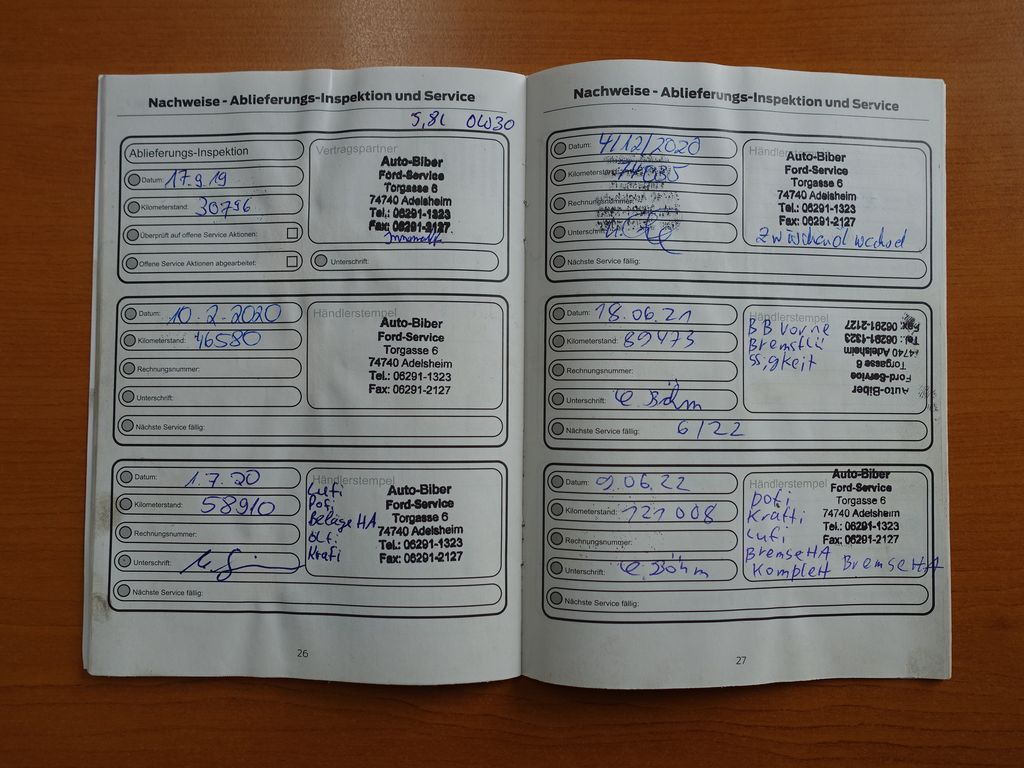 Nachweise - Ablieferungs-Inspektion und Service
5,8l 0W30
Ablieferungs-Inspektion
Datum: 17.9.19
Kilometerstand: 30756
Überprüft auf offene Service Aktionen:
Offene Service Aktionen abgearbeitet:
Vertragspartner
Auto-Biber
Ford-Service
Torgasse 6
74740 Adelsheim
Tel.: 06291-1323
Fax: 06291-2127
Unterschrift:
Datum: 10.2.2020
Kilometerstand: 46580
Rechnungsnummer:
Unterschrift:
Händlerstempel
Auto-Biber
Ford-Service
Torgasse 6
74740 Adelsheim
Tel.: 06291-1323
Fax: 06291-2127
Nächste Service fällig:
Datum: 1.7.20
Kilometerstand: 58910
Rechnungsnummer:
Unterschrift:
Händlerstempel
Lufi
Pofi
Beläge HA
Krafi
Auto-Biber
Ford-Service
Torgasse 6
74740 Adelsheim
Tel.: 06291-1323
Fax: 06291-2127
Nächste Service fällig:
26
Nachweise - Ablieferungs-Inspektion und Service
Datum: 4/12/2020
Kilometerstand:
Rechnungsnummer:
Unterschrift:
Händlerstempel
Auto-Biber
Ford-Service
Torgasse 6
74740 Adelsheim
Tel.: 06291-1323
Fax: 06291-2127
Nächste Service fällig:
Datum: 18.06.21
Kilometerstand: 89473
Rechnungsnummer:
Unterschrift: Böhm
Händlerstempel
BB vorne
Bremsflü
ssigkeit
Auto-Biber
Ford-Service
Torgasse 6
74740 Adelsheim
Tel.: 06291-1323
Fax: 06291-2127
Nächste Service fällig: 6/22
Datum: 9.06.22
Kilometerstand: 121008
Rechnungsnummer:
Unterschrift: Böhm
Händlerstempel
pofi
Krafti
Lufi
BremseHA
Komplett BremseHA
Auto-Biber
Ford-Service
Torgasse 6
74740 Adelsheim
Tel.: 06291-1323
Fax: 06291-2127
Nächste Service fällig:
27